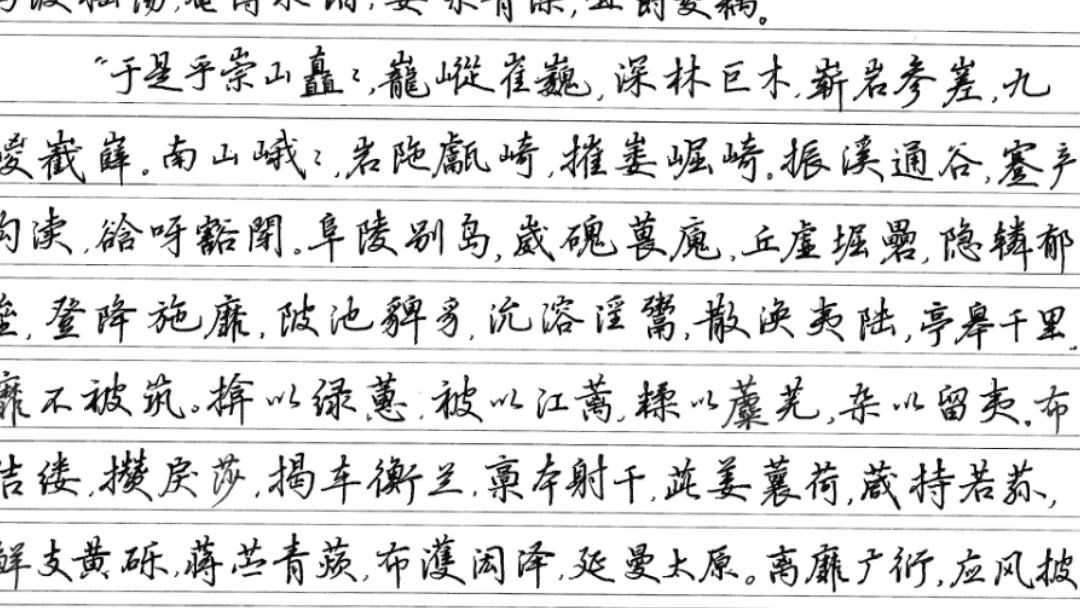 “于是乎崇山矗〻,巃嵷崔巍,深林巨木,崭岩参嵳,九
嵏巀嶭。南山峨〻,岩陁甗崎,摧崣崛崎。振溪通谷,蹇产
沟渎,谽呀豁閕。阜陵别岛,崴磈葨廆,丘虚堀礨,隐辚郁
,登降施靡,陂池貏豸,沇溶淫鬻,散涣夷陆,亭皋千里,
靡不被筑。揜以绿蕙,被以江蓠,糅以蘪芜,杂以留夷。布
结缕,攒戾莎,揭车衡兰,稾本射干,茈姜蘘荷,葴持若荪,
鲜支黄砾,蒋苎青薠,布濩闳泽,延曼太原。离靡广衍,应风披